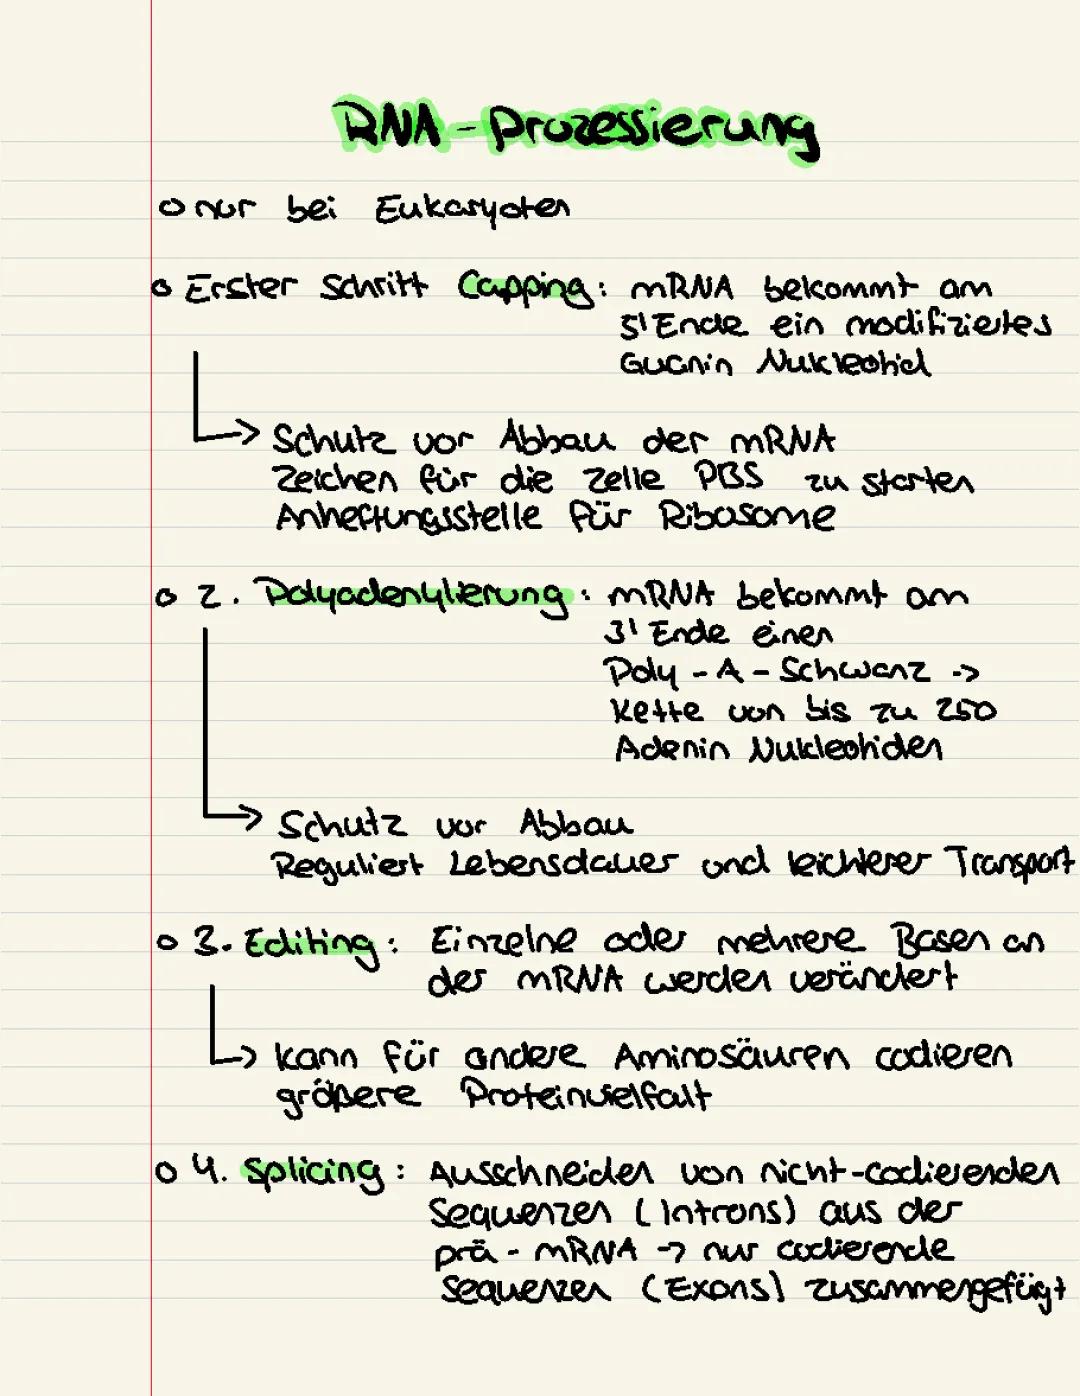 RNA-Prozessierung
o nur bei Eukaryoten
o Erster Schritt Capping: mRNA bekommt am
5' Ende ein modifiziertes
Guanin Nukleotid
→ Schutz vor Abbau der mRNA
Zeichen für die Zelle PBS zu starten
Anheftungsstelle für Ribosome
o 2. Polyadenylierung: mRNA bekommt am
3' Ende einen
Poly-A-Schwanz ->
Kette von bis zu 250
Adenin Nukleotiden
→ Schutz vor Abbau
Reguliert Lebensdauer und leichterer Transport
o 3. Editing: Einzelne oder mehrere Basen an
der mRNA werden verändert
→ kann für andere Aminosäuren codieren
größere Proteinvielfalt
o 4. Splicing: Ausschneiden von nicht-codierenden
Sequenzen (Introns) aus der
prä-mRNA → nur codierende
Sequenzen (Exons) zusammengefügt